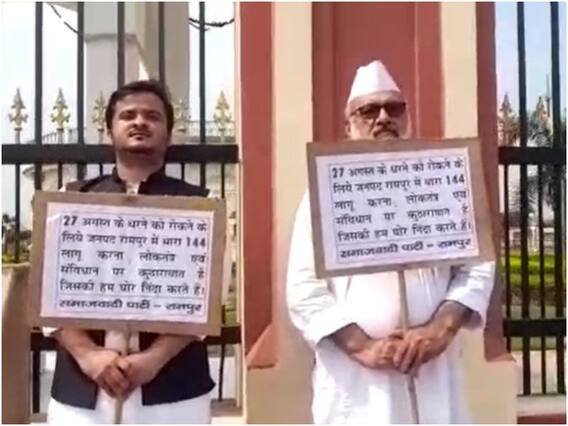 27 अगस्त के धरने को रोकने के
लिये जनपद रामपुर में धारा 144
लागू करना, लोकतंत्र एवं
संविधान पर कुठाराघात है
जिसकी हम घोर निंदा करते हैं।
समाजवादी पार्टी - रामपुर
27 अगस्त के धरने को रोकने के
लिये जनपद रामपुर में धारा 144
लागू करना, लोकतंत्र एवं
संविधान पर कुठाराघात है
जिसकी हम घोर निंदा करते हैं।
समाजवादी पार्टी - रामपुर